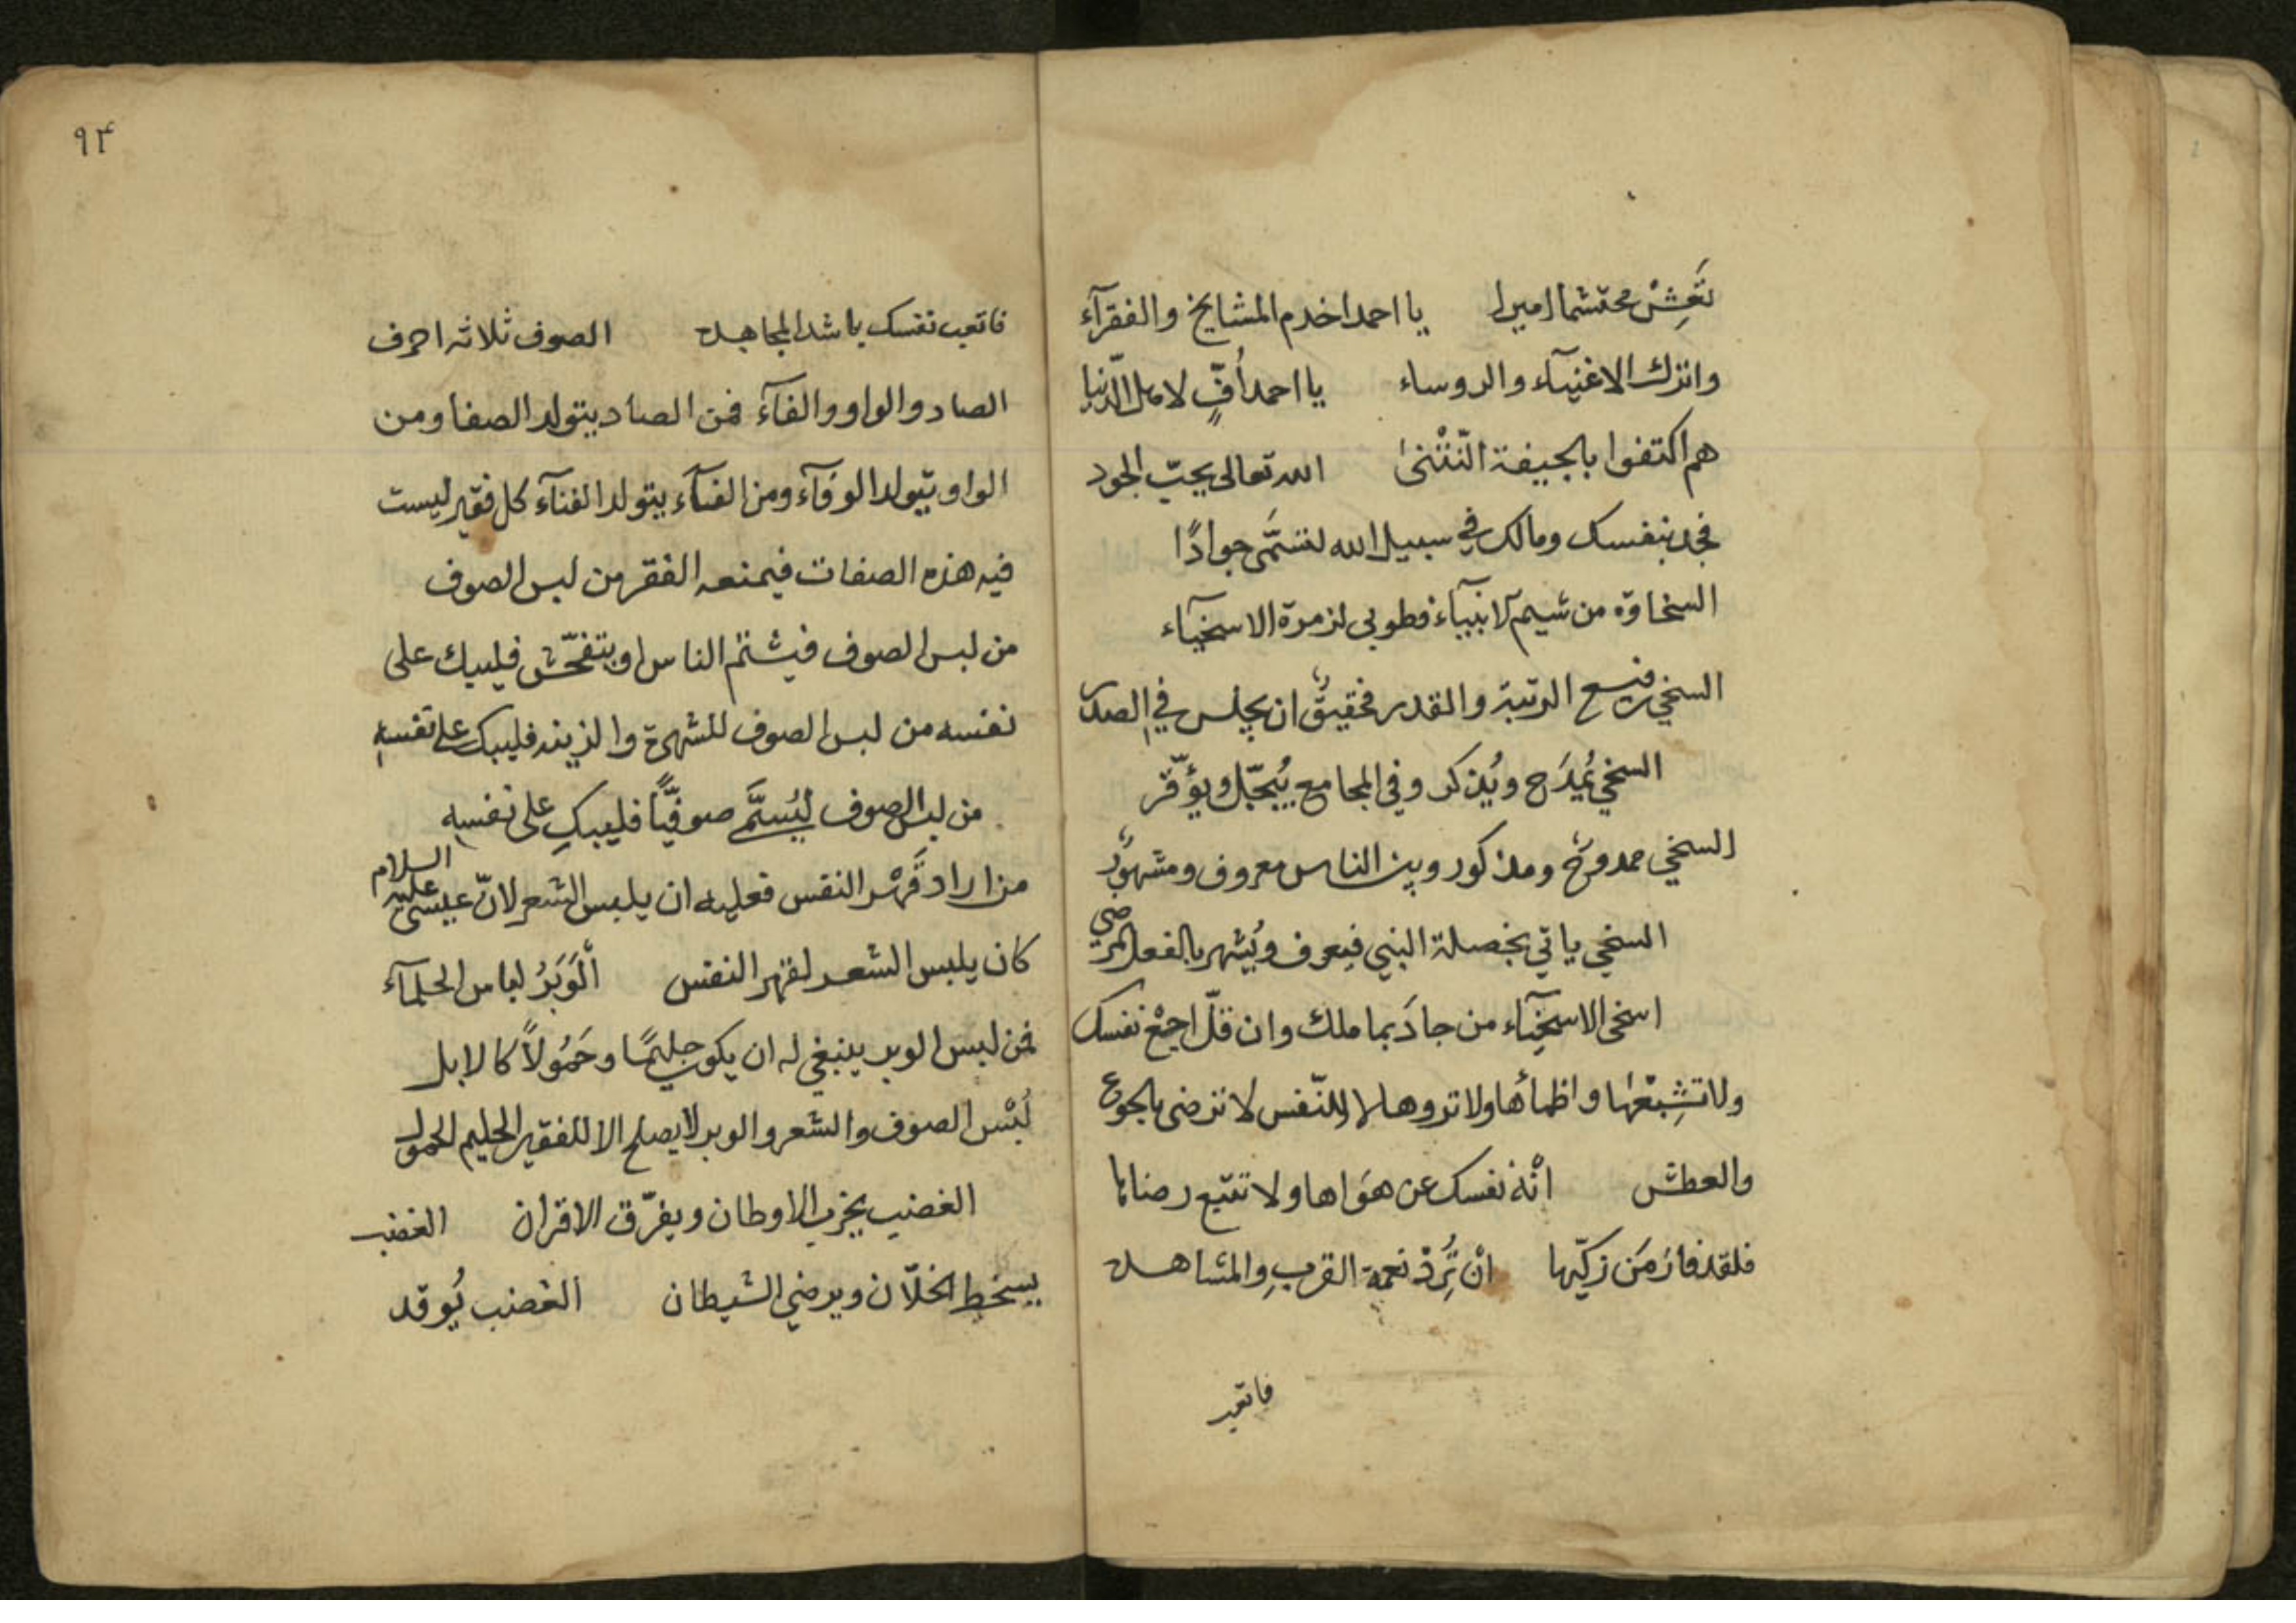 تَعِشْ محتشما اميرا يا احمد اخدم المشايخ والفقرآء
واترك الاغنيآء والروساء يا احمد اُفٍّ لاهل الدّنيا
هم اكتفوا بالجيفة النّتْنىٰ الله تعالى يحبّ الجود
فجد بنفسك ومالك في سبيل الله لتسَمَّى جوادًا
السخاوة من شيم الانبيآء فطوبى لزمرة الاسخيآء
السخي رفيع الرتبة والقدر فحقيقٌ ان يجلس في الصدر
السخي يُمدَح ويُذكر وفي المجامع يُبجّل ويوَقّر
السخي ممدوحٌ ومذكور وبين الناس معروف ومشهورٌ
السخي ياتي بخصلة النبي فيعرف ويُشهر بالفعل المرضي
اسخى الاسخيآء من جادَ بما ملك وان قلّ اجِعْ نفسك
ولا تشِبعْها واظمأها ولا تروها لان النّفس لا ترضى بالجوع
والعطش انْهَ نفسك عن هَواها ولا تتبع رضاها
فلقد فازَ مَن زكّيها انْ تُرِدْ نعمة القربِ والمشاهده
فاتعب
٩٤
فاتعب نفسك باشد المجاهده الصوف ثلاثه احرف
الصاد والواو والفآء فمن الصاد يتولد الصفا ومن
الواو يتولد الوفآء ومن الفآء يتولد الفنآء كل فقير ليست
فيه هذه الصفات فيمنعه الفقر من لبس الصوف
من لبس الصوف فيشتم الناس او يتفحّش فليبك على
نفسه من لبس الصوف للشهرة والزينه فليبك على نفسهِ
من لبس الصوف ليُسَمَّى صوفيًّا فليبكِ على نفسهِ
من اراد قَهْر النفس فعليه ان يلبس الشعر لانّ عيسى عليه السلام
كان يلبس الشعر لقهر النفس اَلْوَبَرُ لباس الحلمآء
فمن لبس الوبر ينبغي له ان يكون حليمًا وحَمُولاً كالابل
لُبْس الصوف والشعر والوبر لا يصلح الا للفقير الحليم الحمول
الغضب يخرب الاوطان ويفرّق الاقران الغضب
يسخط الخلّان ويرضي الشيطان الغضب يُوقد